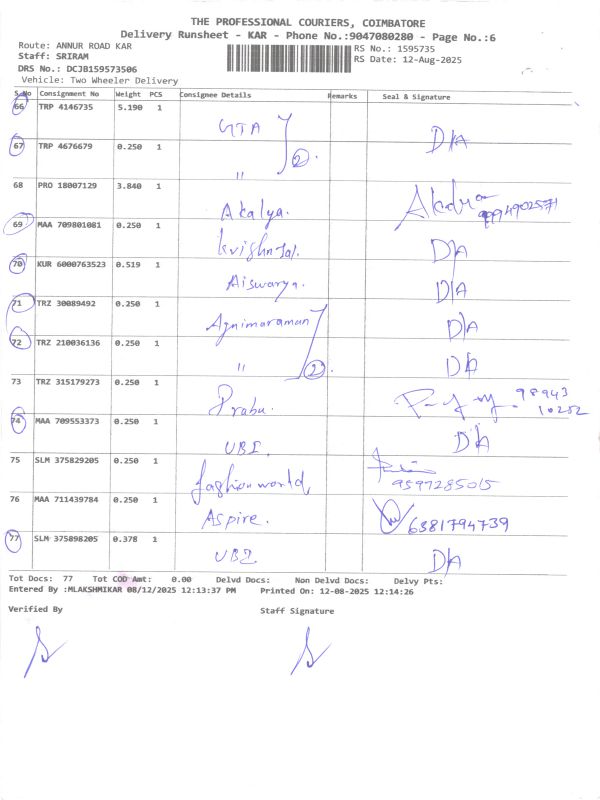 THE PROFESSIONAL COURIERS, COIMBATORE
Delivery Runsheet - KAR - Phone No.:9047080280 - Page No.:6
Route: ANNUR ROAD KAR
RS No.: 1595735
Staff: SRIRAM
RS Date: 12-Aug-2025
DRS No.: DCJB159573506
Vehicle: Two Wheeler Delivery
S.No Consignment No Weight PCS Consignee Details Remarks Seal & Signature
66 TRP 4146735 5.190 1 GTA D/A
67 TRP 4676679 0.250 1 " 2.
68 PRO 18007129 3.840 1 Akalya. 9994902571
69 MAA 709801081 0.250 1 D/A
70 KUR 6000763523 0.519 1 Aiswarya. D/A
71 TRZ 30089492 0.250 1 Agnimaraman D/A
72 TRZ 210036136 0.250 1 " 2. D/A
73 TRZ 315179273 0.250 1 Prabu. 98943 10252
74 MAA 709553373 0.250 1 UBI. D/A
75 SLM 375829205 0.250 1 fashionworld 9597285015
76 MAA 711439784 0.250 1 Aspire. 6381794739
77 SLM 375898205 0.378 1 UBI D/A
Tot Docs: 77 Tot COD Amt: 0.00 Delvd Docs: Non Delvd Docs: Delvy Pts:
Entered By :MLAKSHMIKAR 08/12/2025 12:13:37 PM Printed On: 12-08-2025 12:14:26
Verified By Staff Signature